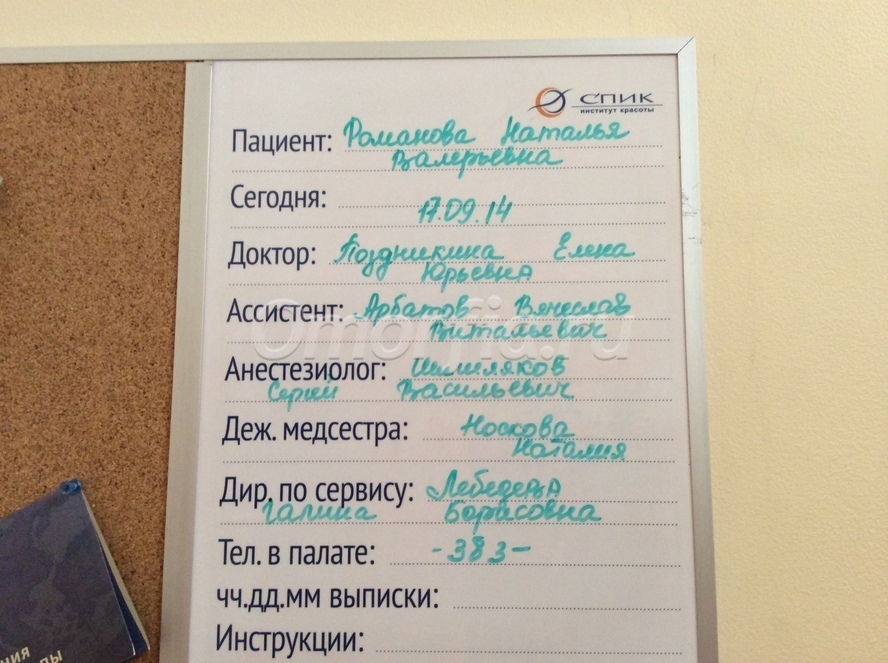 СПИК
институт красоты
Пациент: Романова Наталья
Валерьевна
Сегодня:
17.09.14
Доктор: Поздникина Елена
Юрьевна
Ассистент: Арбатов Вячеслав
Витальевич
Omorfia.ru
Анестезиолог: Шишляков
Сергей Васильевич
Деж. медсестра: Носкова
Наталия
Дир. по сервису: Лебедева
Галина Борисовна
Тел. в палате: -383-
чч.дд.мм выписки:
Инструкции: